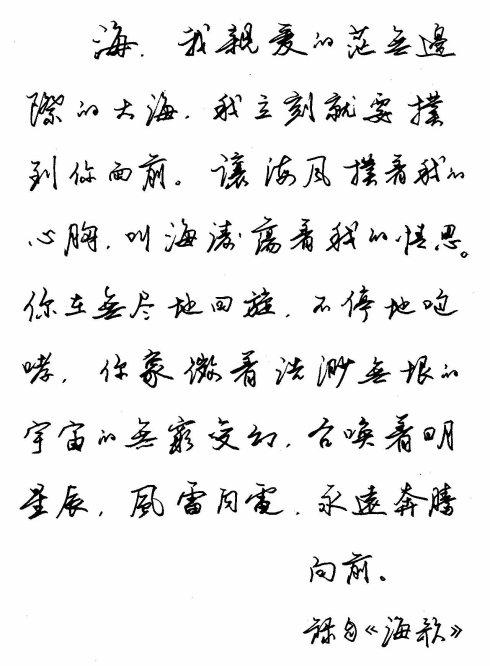 海，我親爱的茫無邊
際的大海，我立刻就要撲
到你面前。讓海风撲着我的
心胸，叫海濤蕩着我的情思。
你在無尽地回旋，不停地咆
哮，你象徵着浩渺無垠的
宇宙的無窮变幻，召唤着明
星辰，風雷闪電，永遠奔騰
向前。
錄自《海歌》